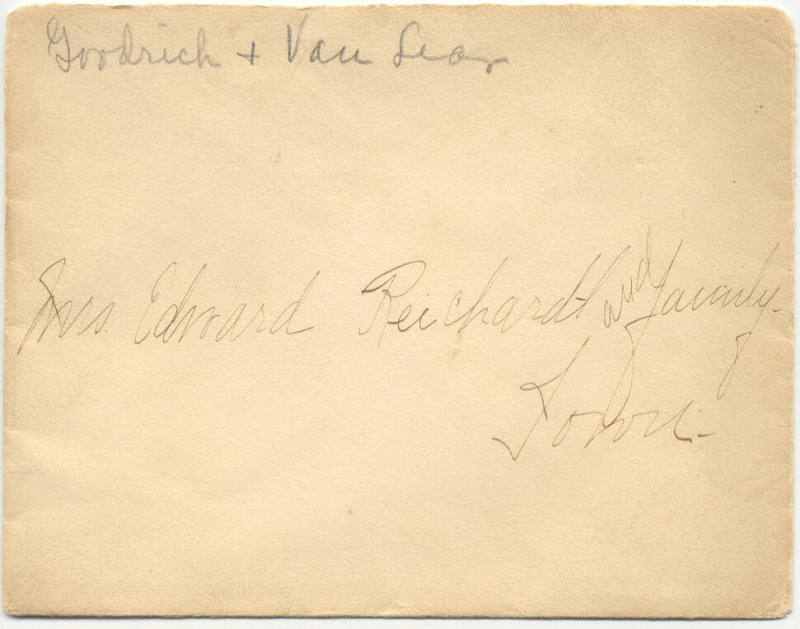 Goodrich + Van Lear
Mrs. Edward Reichardt and family.
Town.